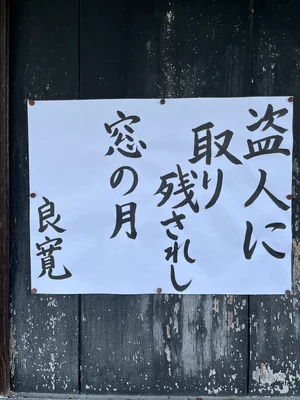 盗人に
取り
残されし
窓の月
良寛